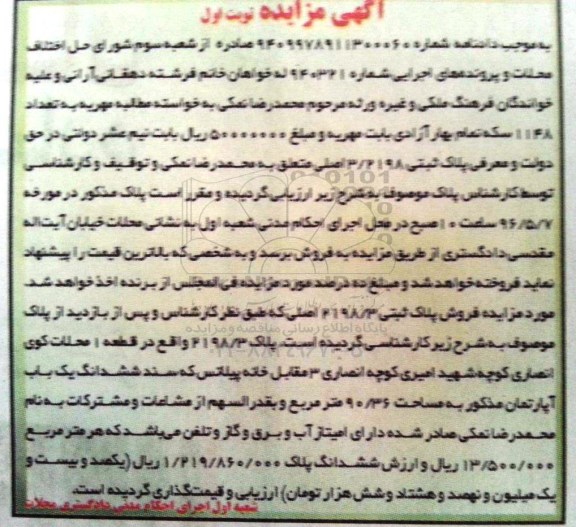 آگهی مزایده نوبت اول
به موجب دادنامه شماره ۹۴۰۹۹۷۸۹۱۱۳۰۰۰۶۰ صادره از شعبه سوم شورای حل اختلاف
محلات و پرونده‌های اجرایی شماره ۹۴۰۳۲۱ له خواهان خانم فرشته دهقانی آرانی و علیه
خواندگان فرهنگ ملکی و غیره ورثه مرحوم محمدرضا نمکی به خواسته مطالبه مهریه به تعداد
۱۱۴۸ سکه تمام بهار آزادی بابت مهریه و مبلغ ۵۰۰۰۰۰۰۰ ریال بابت نیم عشر دولتی در حق
دولت و معرفی پلاک ثبتی ۳/۲۱۹۸ اصلی متعلق به محمدرضا نمکی و توقیف و کارشناسی
توسط کارشناس پلاک موصوف به شرح زیر ارزیابی گردیده و مقرر است پلاک مذکور در مورخه
۹۶/۵/۷ ساعت ۱۰ صبح در محل اجرای احکام مدنی شعبه اول به نشانی محلات خیابان آیت‌اله
مقدسی دادگستری از طریق مزایده به فروش برسد و به شخصی که بالاترین قیمت را پیشنهاد
نماید فروخته خواهد شد و مبلغ ده درصد مورد مزایده فی المجلس از برنده اخذ خواهد شد.
مورد مزایده فروش پلاک ثبتی ۲۱۹۸/۳ اصلی که طبق نظر کارشناس و پس از بازدید از پلاک
موصوف به شرح زیر کارشناسی گردیده است. پلاک ۲۱۹۸/۳ واقع در قطعه ۱ محلات کوی
انصاری کوچه شهید امیری کوچه انصاری ۳ مقابل خانه پیلاتس که سند ششدانگ یک باب
آپارتمان مذکور به مساحت ۹۰/۳۶ متر مربع و بقدرالسهم از مشاعات و مشترکات به نام
محمدرضا نمکی صادر شده دارای امتیاز آب و برق و گاز و تلفن می‌باشد که هر متر مربع
۱۳/۵۰۰/۰۰۰ ریال و ارزش ششدانگ پلاک ۱/۲۱۹/۸۶۰/۰۰۰ ریال (یکصد و بیست و
یک میلیون و نهصد و هشتاد و شش هزار تومان) ارزیابی و قیمت‌گذاری گردیده است.
شعبه اول اجرای احکام مدنی دادگستری محلات
پایگاه اطلاع رسانی مناقصه و مزایده